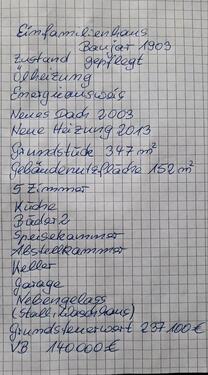 Einfamilienhaus
Baujar 1903
Zustand gepflegt
Ölheizung
Energieausweis
Neues Dach 2003
Neue Heizung 2013
Grundstück 347 m²
Gebäudenutzfläche 152 m²
5 Zimmer
Küche
Bäder 2
Speisekammer
Abstellkammer
Keller
Garage
Nebengelass
(Stall, Waschhaus)
Grundsteuerwert 237100€
VB 140000€